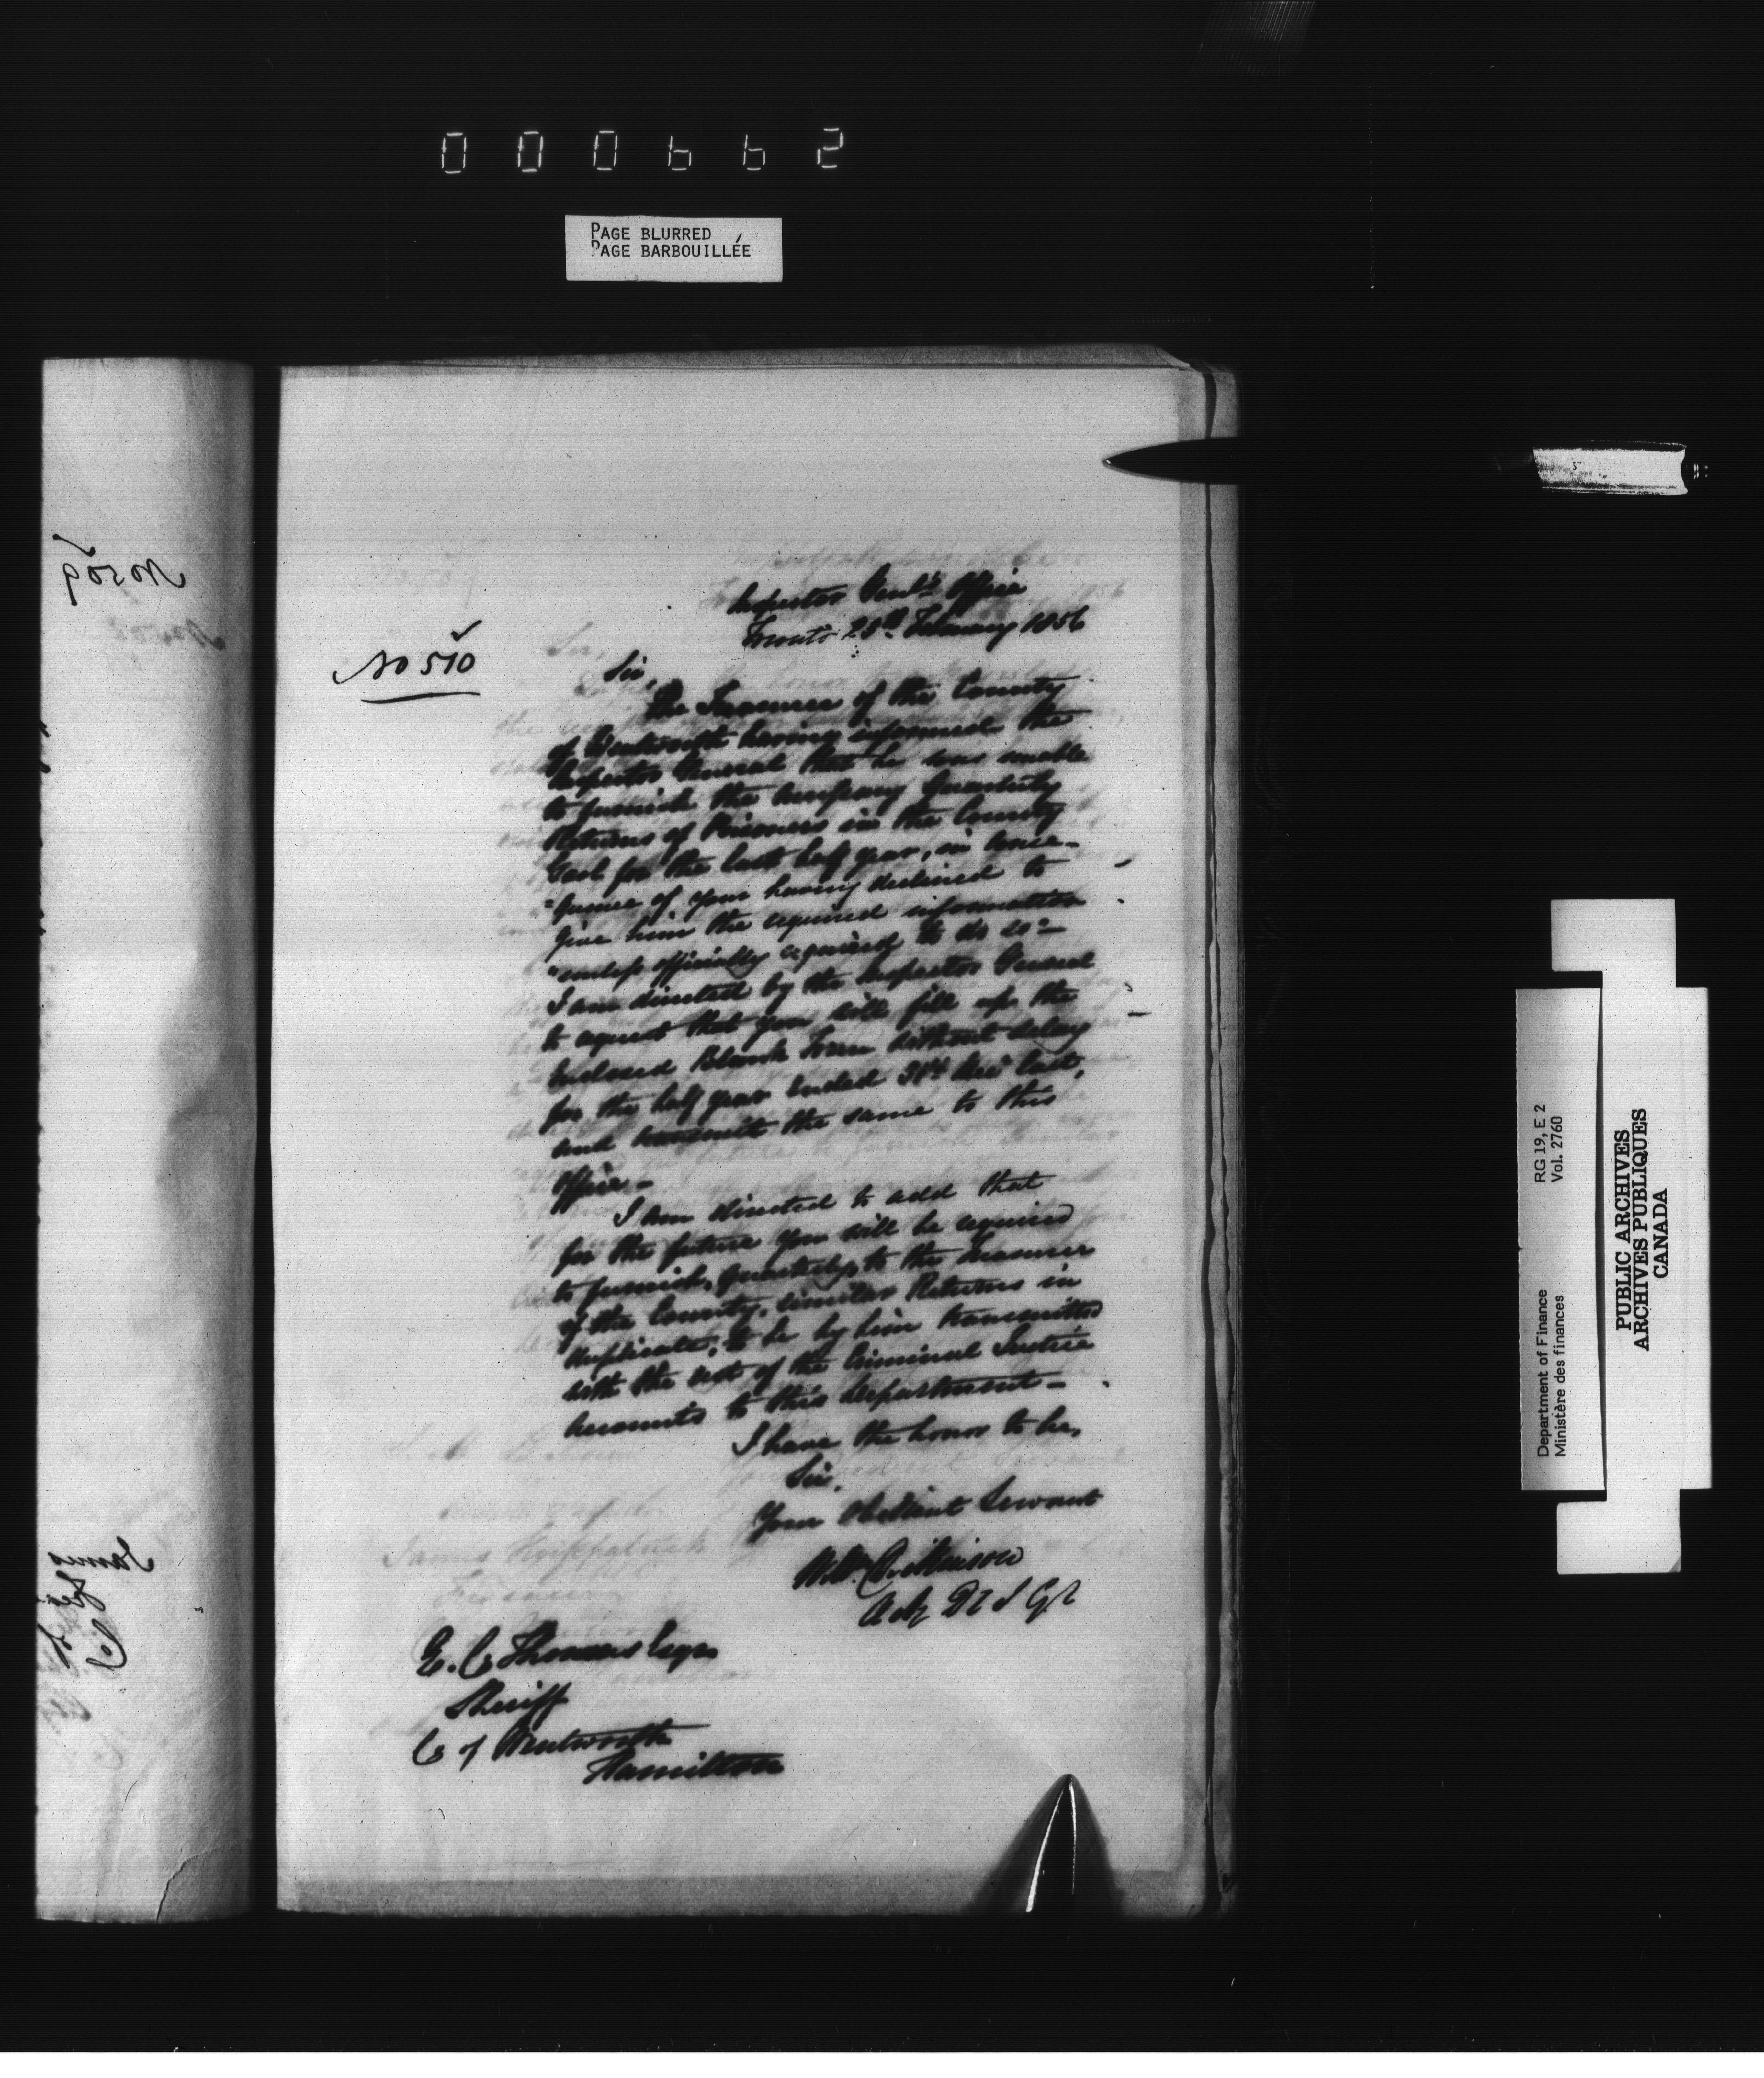 000662
PAGE BLURRED
PAGE BARBOUILLÉE
No 509
No 510
Inspector Genl's Office
Toronto 25th February 1856
Sir,
The Treasurer of the County
of Wentworth having informed the
Inspector General that he was unable
to furnish the necessary Quarterly
Returns of Prisoners in the County
Gaol for the last half year, in conse-
"quence of your having declined to
give him the required information
"unless officially required to do so"—
I am directed by the Inspector General
to request that you will fill up the
enclosed Blank Form without delay
for the half year ended 31st Decr last,
and transmit the same to this
Office—
I am directed to add that
for the future you will be required
to furnish, quarterly, to the Treasurer
of the County, similar Returns in
duplicate, to be by him transmitted
with the rest of the Criminal Justice
Accounts to this Department—
I have the honor to be,
Sir,
Your Obedient Servant
Wm
E. C. Thomas Esqre
Sheriff
Co of Wentworth
Hamilton
James Kirkpatrick
RG 19, E 2
Vol. 2760
Department of Finance
Ministère des finances
PUBLIC ARCHIVES
ARCHIVES PUBLIQUES
CANADA